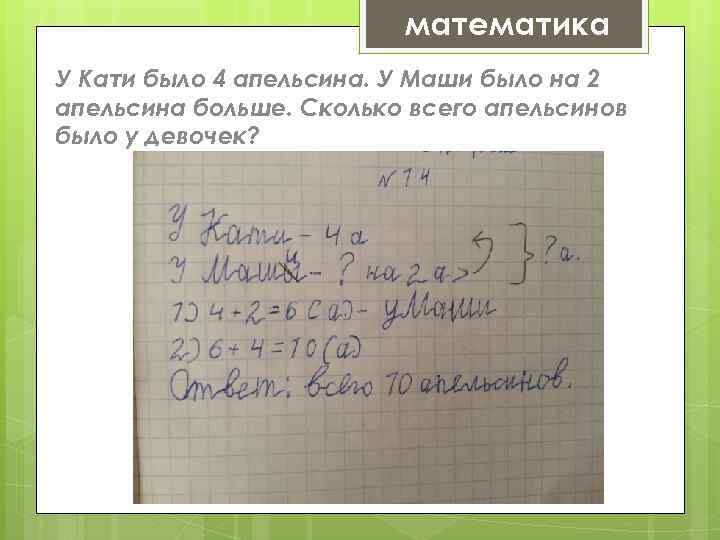 математика
У Кати было 4 апельсина. У Маши было на 2
апельсина больше. Сколько всего апельсинов
было у девочек?
№14
У Кати - 4 а
У Маши - ? на 2 а > } ? а.
1) 4+2=6 (а) - у Маши
2) 6+4=10 (а)
Ответ: всего 10 апельсинов.